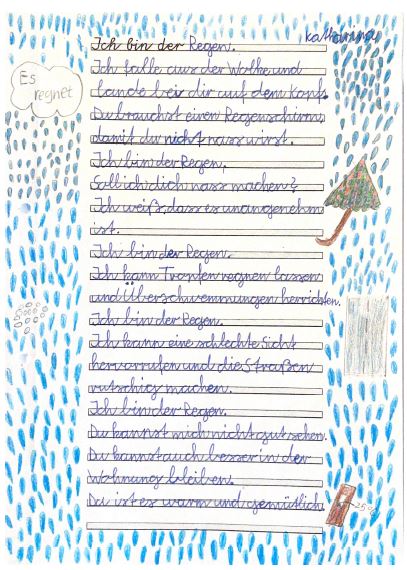 Katharina
Ich bin der Regen.
Es
regnet
Ich falle aus der Wolke und
lande bei dir auf dem Kopf.
Du brauchst einen Regenschirm,
damit du nicht nass wirst.
Ich bin der Regen.
Soll ich dich nass machen?
Ich weiß, dass es unangenehm
ist.
Ich bin der Regen.
Ich kann Tropfen regnen lassen
und Überschwemmungen herrichten.
Ich bin der Regen.
Ich kann eine schlechte Sicht
hervorrufen und die Straßen
rutschig machen.
Ich bin der Regen.
Du kannst mich nicht gut sehen.
Du kannst auch besser in der
Wohnung bleiben.
Da ist es warm und gemütlich.